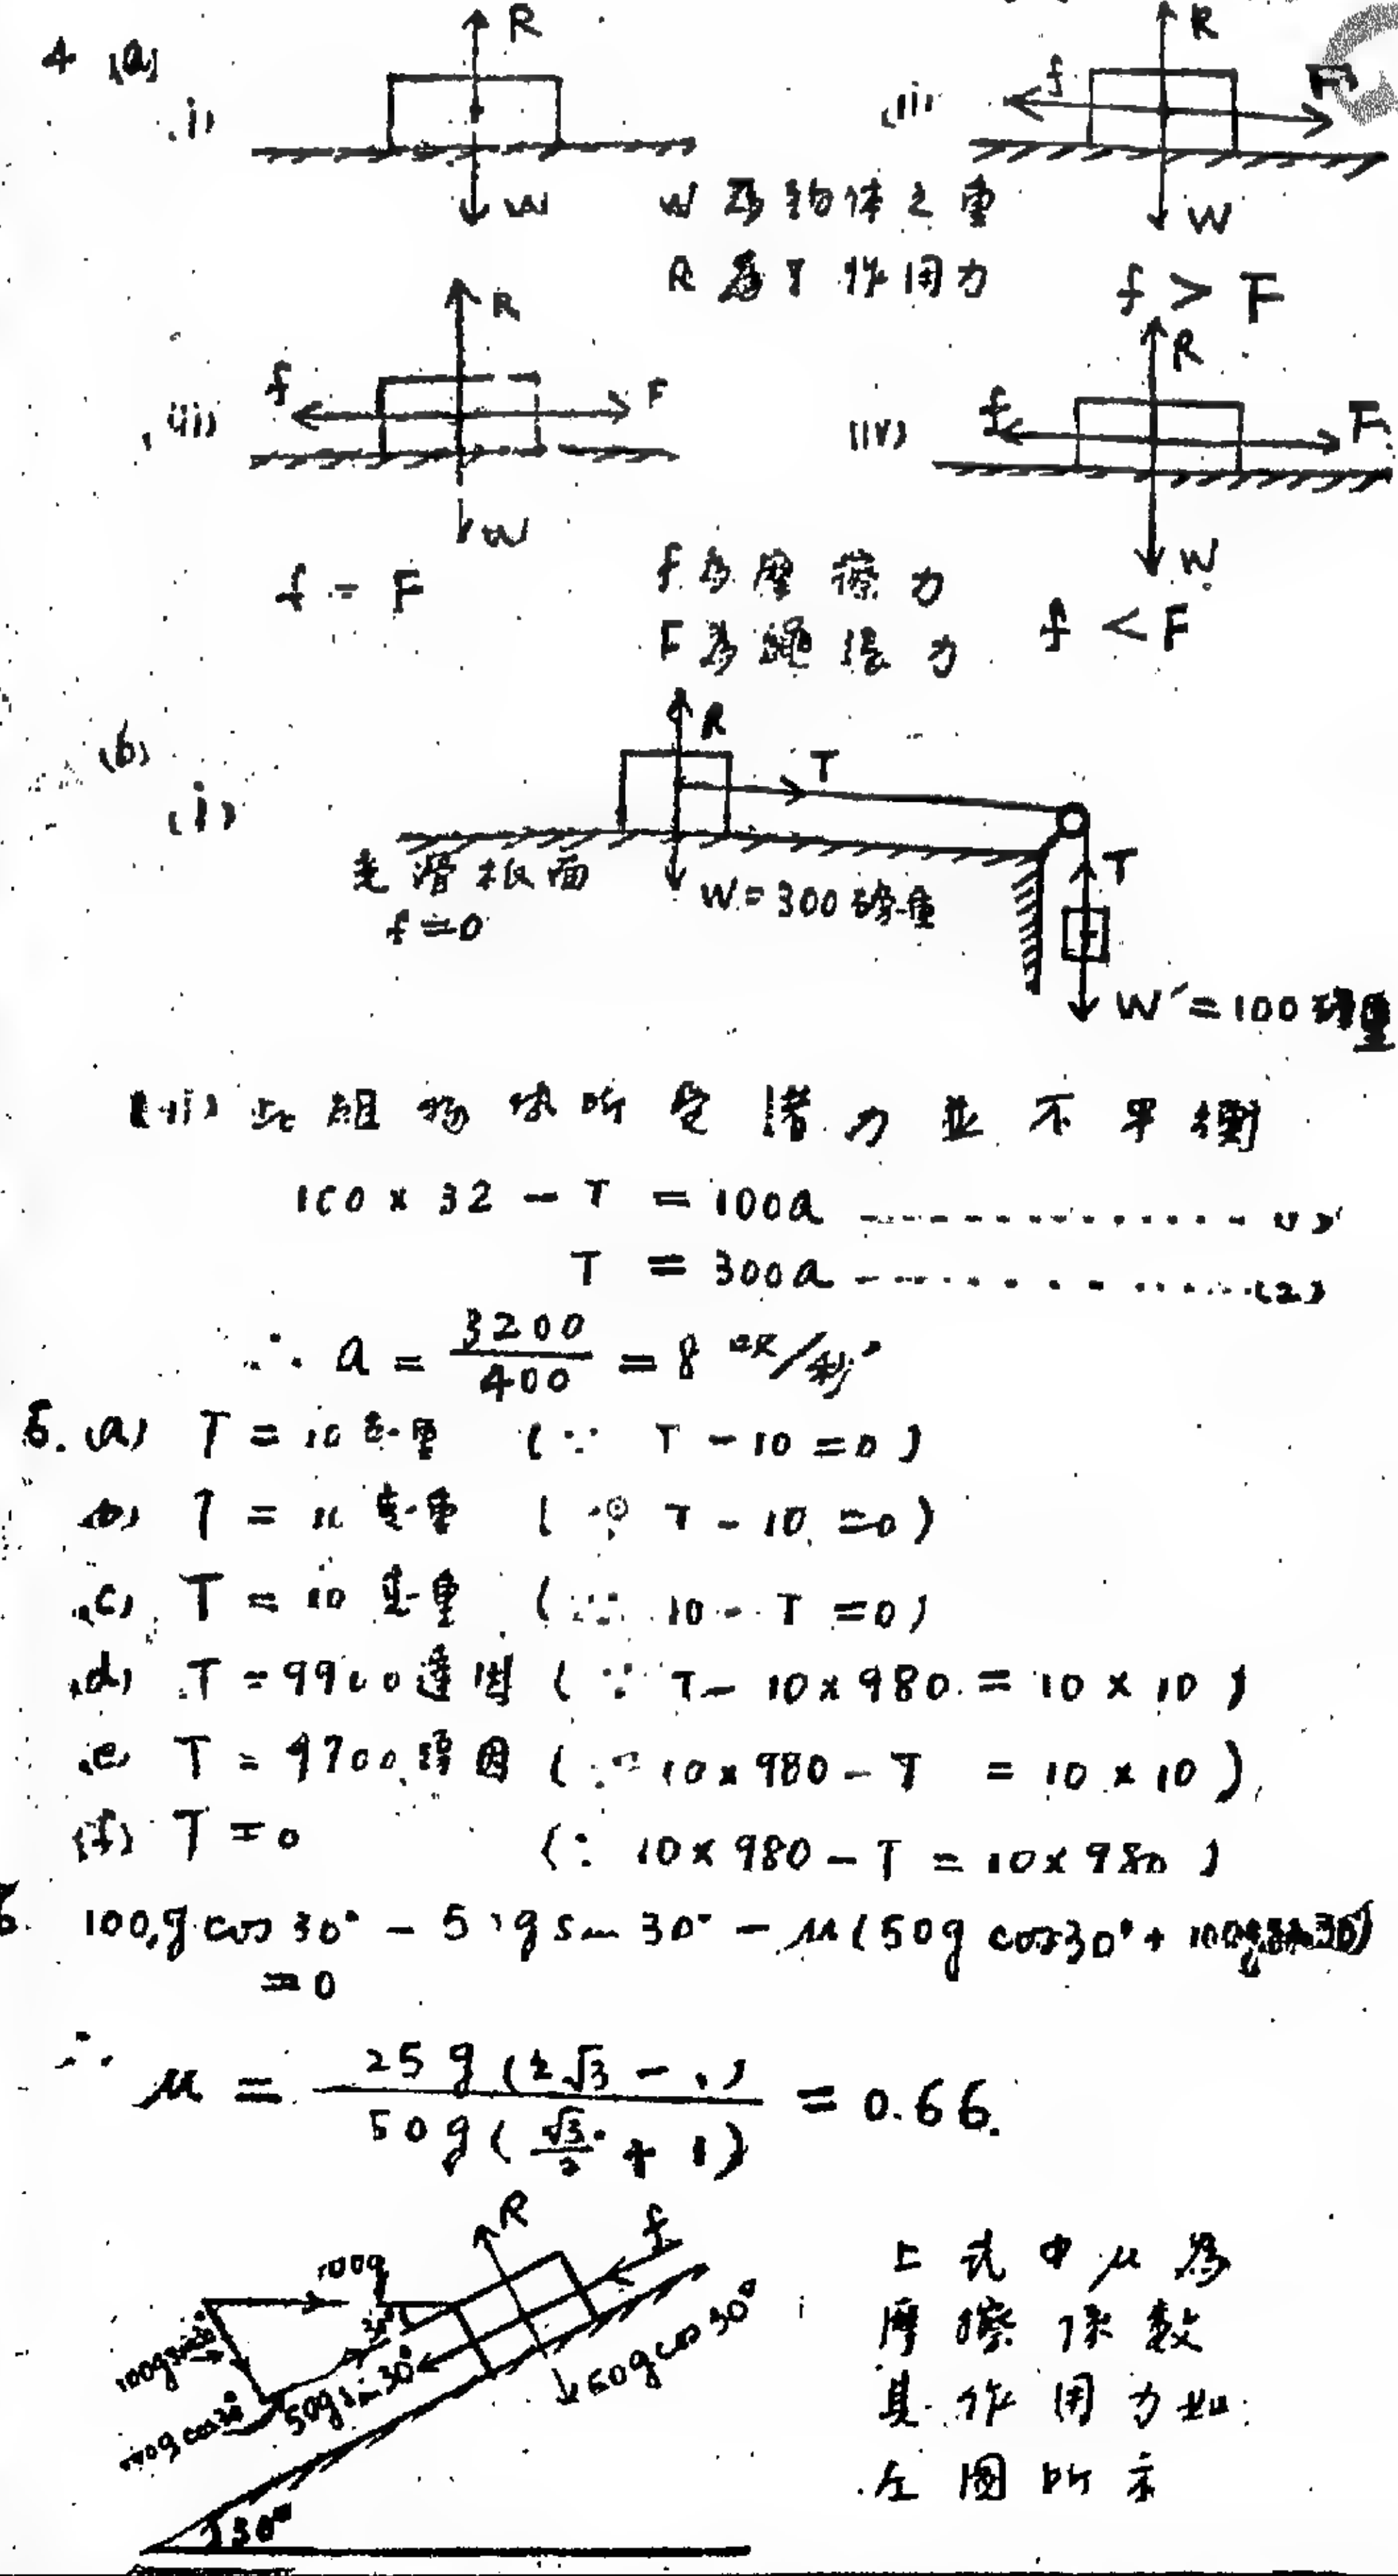 4 (a)
(i) R
W
(ii) R
f F
W
W 為物体之重
R 為反作用力
f > F
(iii) R
f F
W
f = F
(iv) R
f F
W
f < F
f 為摩擦力
F 為繩張力
(b)
(i) R
T
T
光滑板面
f = 0
W = 300 磅重
W' = 100 磅重
(ii) 此組物体所受諸力並不平衡
100 × 32 - T = 100a -------------- (1)
T = 300a -------------- (2)
∴ a = 3200/400 = 8 呎/秒²
5. (a) T = 10 克重 (∵ T - 10 = 0)
(b) T = 10 克重 (∵ T - 10 = 0)
(c) T = 10 克重 (∵ 10 - T = 0)
(d) T = 9900 達因 (∵ T - 10 × 980 = 10 × 10)
(e) T = 9700 達因 (∵ 10 × 980 - T = 10 × 10)
(f) T = 0 (∵ 10 × 980 - T = 10 × 980)
6. 100g cos 30° - 50g sin 30° - μ(50g cos 30° + 100g sin 30°)
= 0
∴ μ = 25g(2√3 - 1) / 50g(√3/2 + 1) = 0.66.
R
f
100g
30°
100g sin 30°
100g cos 30°
50g sin 30°
50g cos 30°
30°
上式中 μ 為
摩擦係數
其作用力如
左圖所示